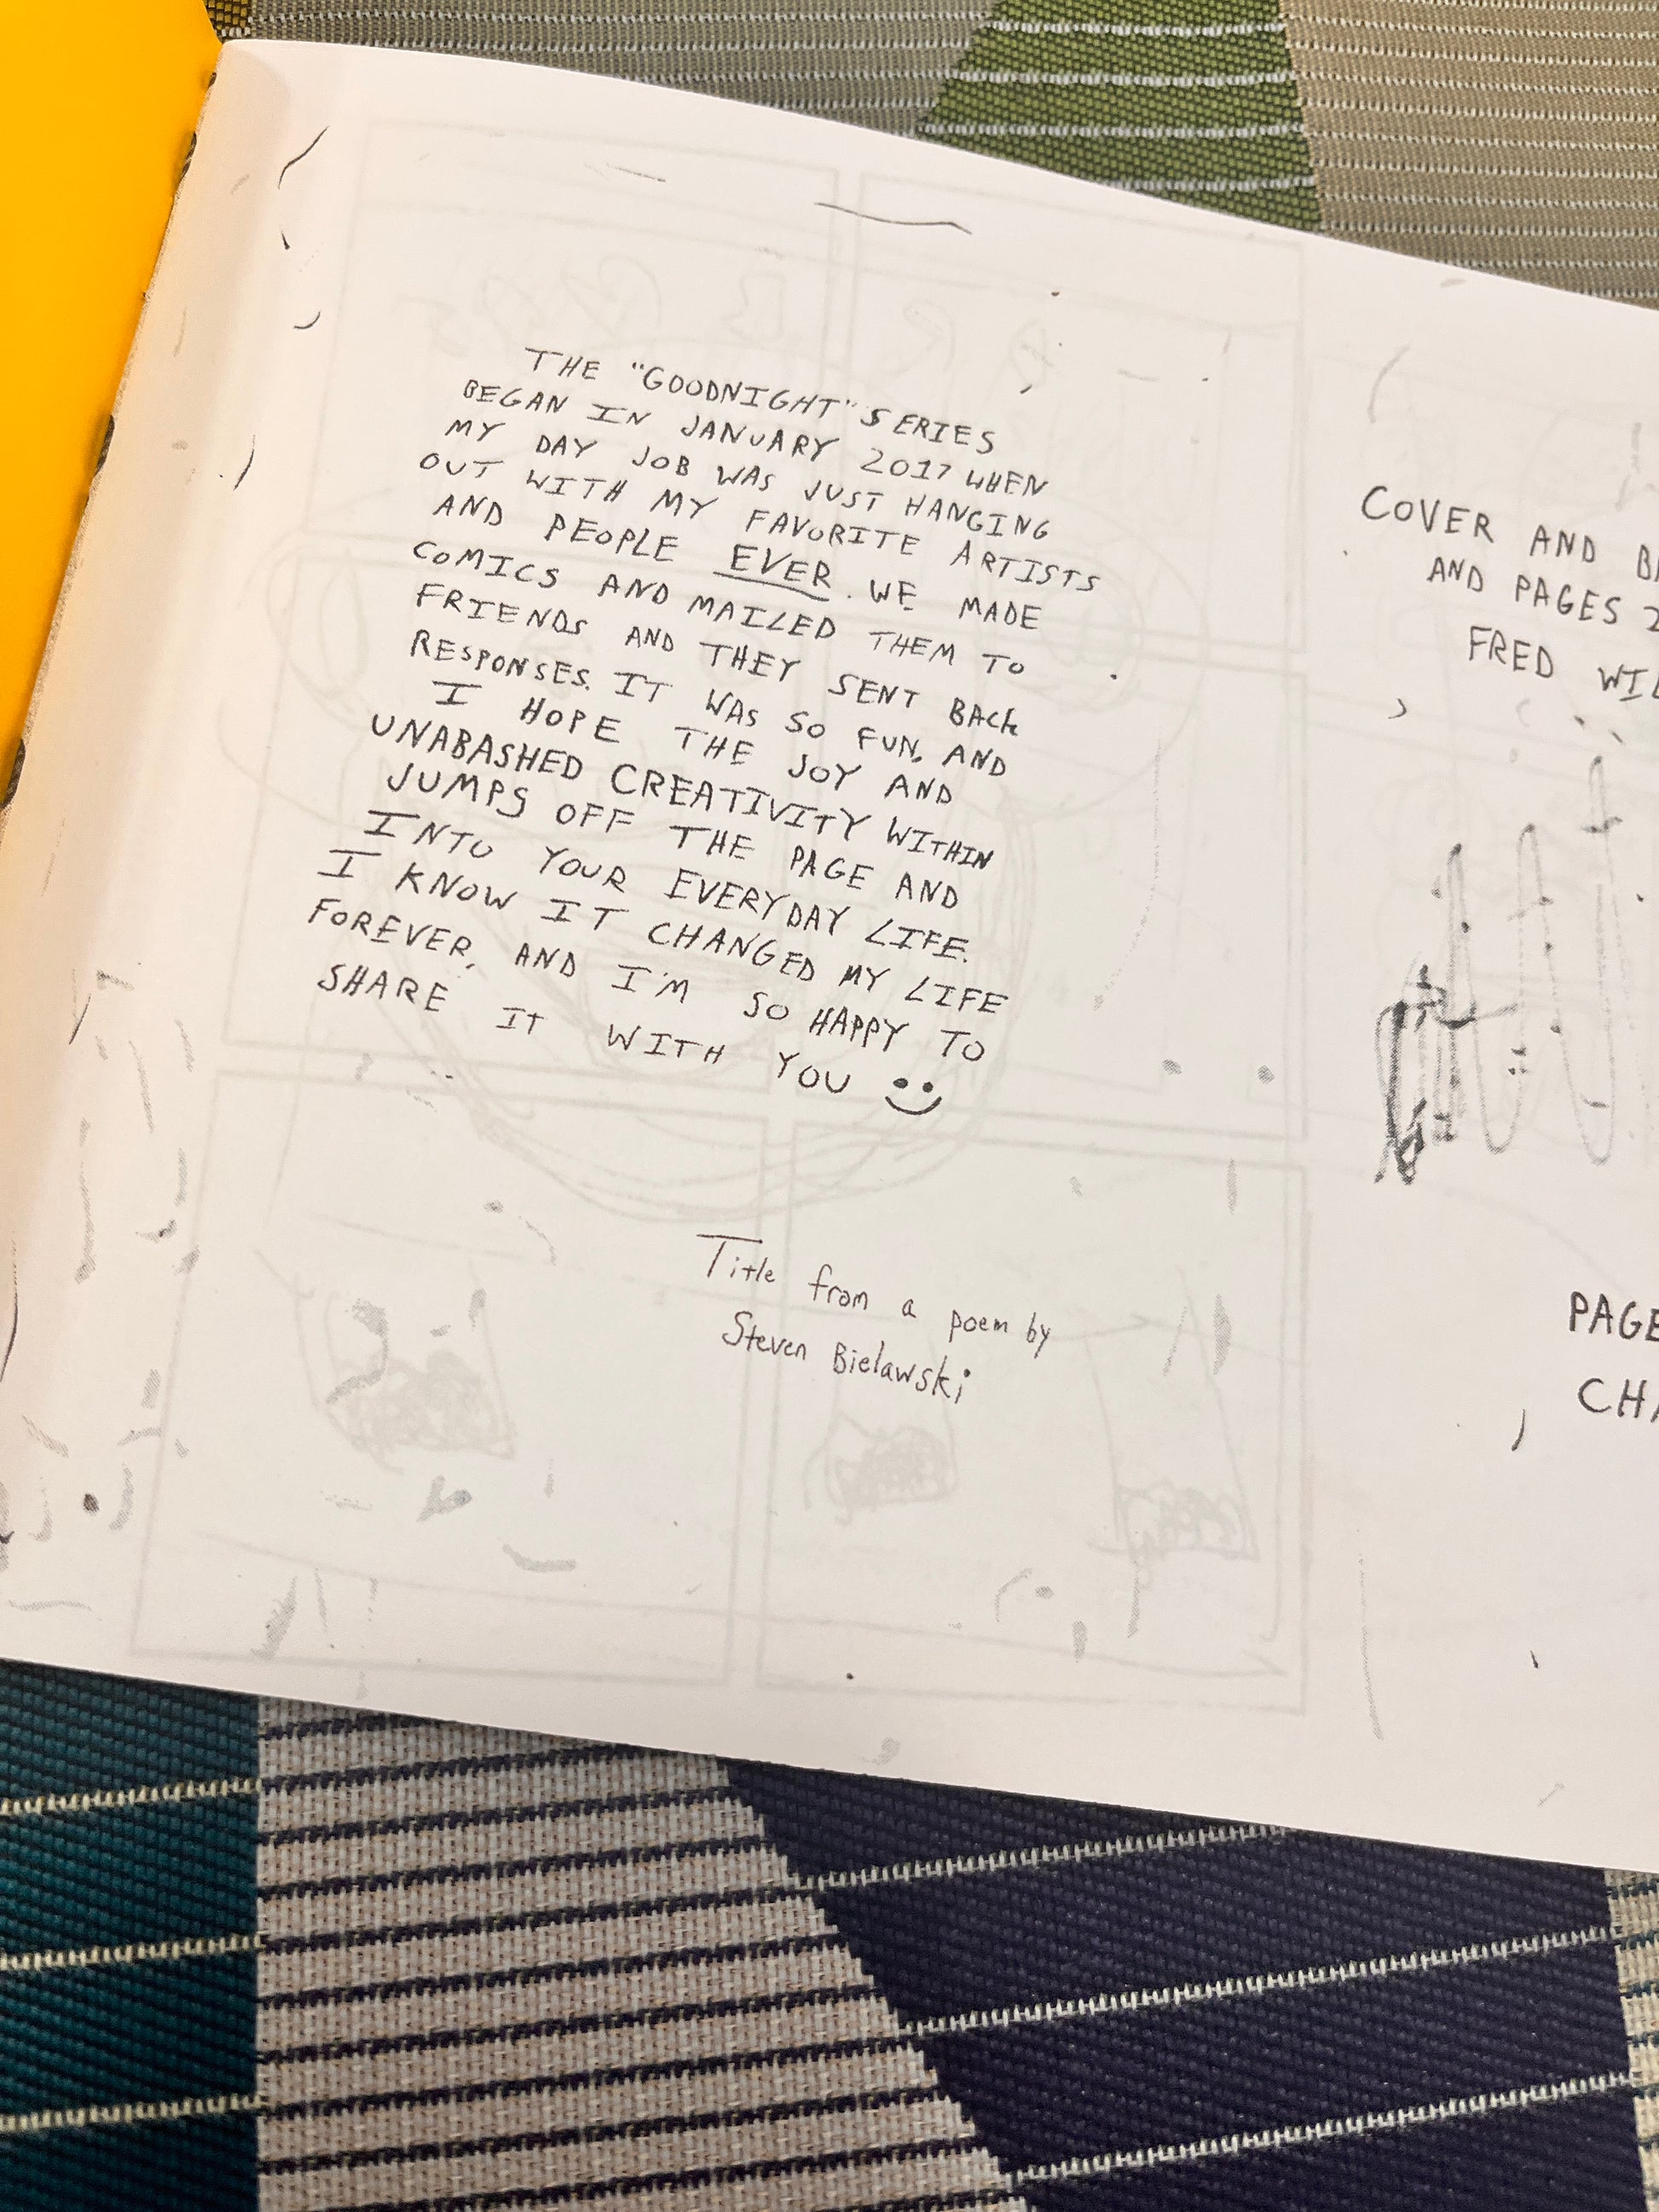 THE "GOODNIGHT" SERIES
BEGAN IN JANUARY 2017 WHEN
MY DAY JOB WAS JUST HANGING
OUT WITH MY FAVORITE ARTISTS
AND PEOPLE EVER. WE MADE
COMICS AND MAILED THEM TO
FRIENDS AND THEY SENT BACK
RESPONSES. IT WAS SO FUN, AND
I HOPE THE JOY AND
UNABASHED CREATIVITY WITHIN
JUMPS OFF THE PAGE AND
INTO YOUR EVERYDAY LIFE.
I KNOW IT CHANGED MY LIFE
FOREVER, AND I'M SO HAPPY TO
SHARE IT WITH YOU
Title from a poem by
Steven Bielawski
COVER AND
AND PAGES
FRED